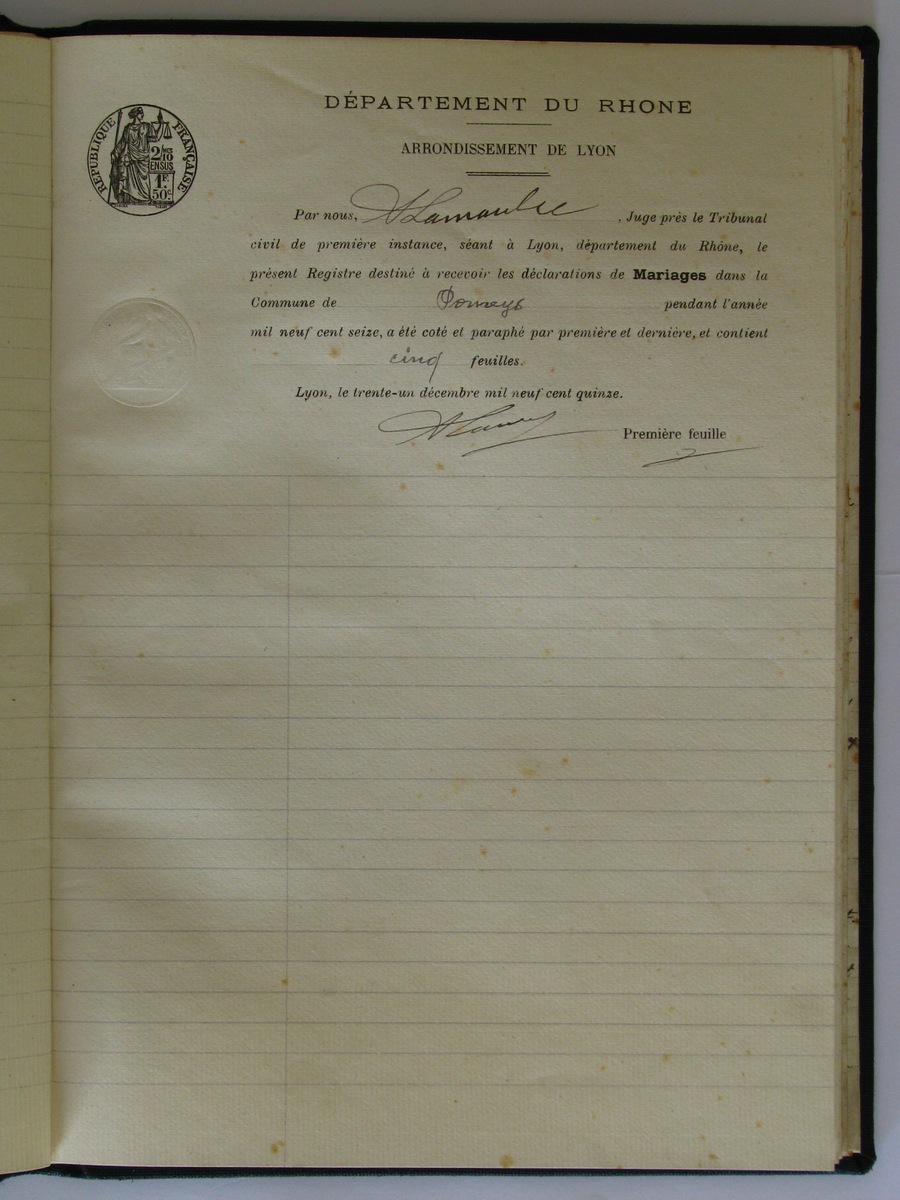 DÉPARTEMENT DU RHONE
RÉPUBLIQUE FRANÇAISE
2/10 EN SUS
1F. 50c
ARRONDISSEMENT DE LYON
Par nous, , Juge près le Tribunal
civil de première instance, séant à Lyon, département du Rhône, le
présent Registre destiné à recevoir les déclarations de Mariages dans la
Commune de Pomeys pendant l'année
mil neuf cent seize, a été coté et paraphé par première et dernière, et contient
cinq feuilles.
Lyon, le trente-un décembre mil neuf cent quinze.
Première feuille